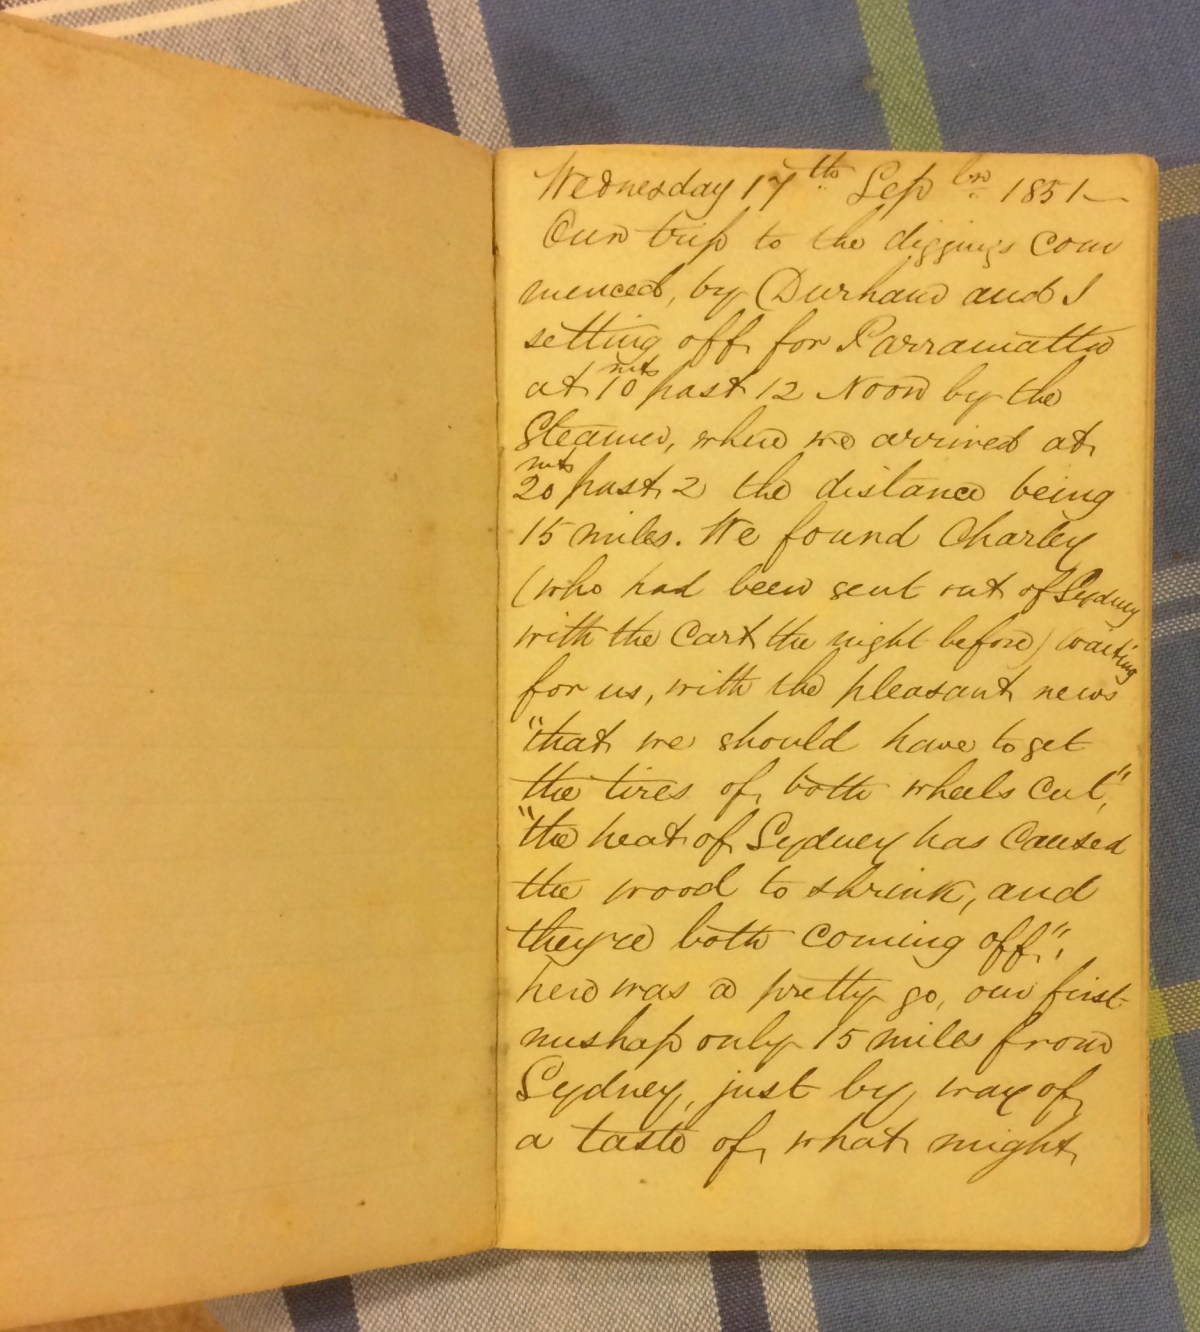 Wednesday 17th Sepbr 1851—
Our trip to the diggings com
menced, by Durham and I
setting off for Parramatta
at 10 mts past 12 Noon by the
Steamer, where we arrived at
20 mts past 2 the distance being
15 miles. We found Charley
(who had been sent out of Sydney
with the Cart the night before) waiting
for us, with the pleasant news
"that we should have to get
the tires of both wheels cut,"
"the heat of Sydney has caused
the wood to shrink, and
they're both coming off":
here was a pretty go, our first
mishap only 15 miles from
Sydney, just by way of
a taste of what might